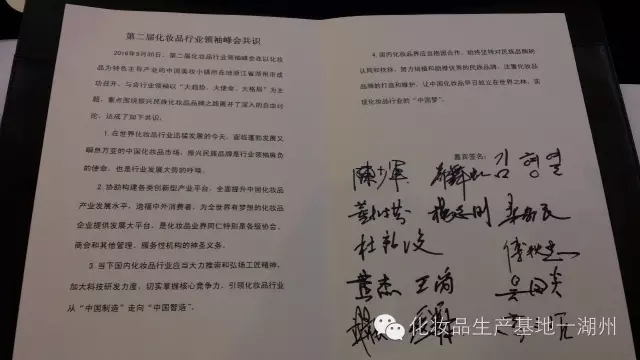 第二届化妆品行业领袖峰会共识
2016年9月30日，第二届化妆品行业领袖峰会在以化妆
品为特色主导产业的中国美妆小镇所在地浙江省湖州市成
功召开，与会行业领袖以“大趋势、大使命、大格局”为主
题，重点围绕振兴民族化妆品品牌之路展开了深入的自由讨
论，达成了如下共识。
1. 在世界化妆品行业迅猛发展的今天，面临蓬勃发展又
瞬息万变的中国化妆品市场，振兴民族品牌是行业领袖肩负
的使命，也是行业发展大势的呼唤。
2. 协助构建各类创新型产业平台，全面提升中国化妆品
产业发展水平，造福中外消费者，为全世界有梦想的化妆品
企业提供发展大平台，是化妆品业界同仁特别是各级协会、
商会和其他管理、服务性机构的神圣义务。
3. 当下国内化妆品行业应当大力推崇和弘扬工匠精神，
加大科技研发力度，切实掌握核心竞争力，引领化妆品行业
从“中国制造”走向“中国智造”。
4. 国内化妆品界应当抱团合作，始终坚持对民族品牌的
认同和扶持，努力培植和助推优秀的民族品牌，注重化妆品
品牌的打造和维护，让中国化妆品早日屹立在世界之林，实
现化妆品行业的“中国梦”。
嘉宾签名：김형열
陳少軍
董树芬
杜礼
董杰 王茜
化妆品生产基地—湖州